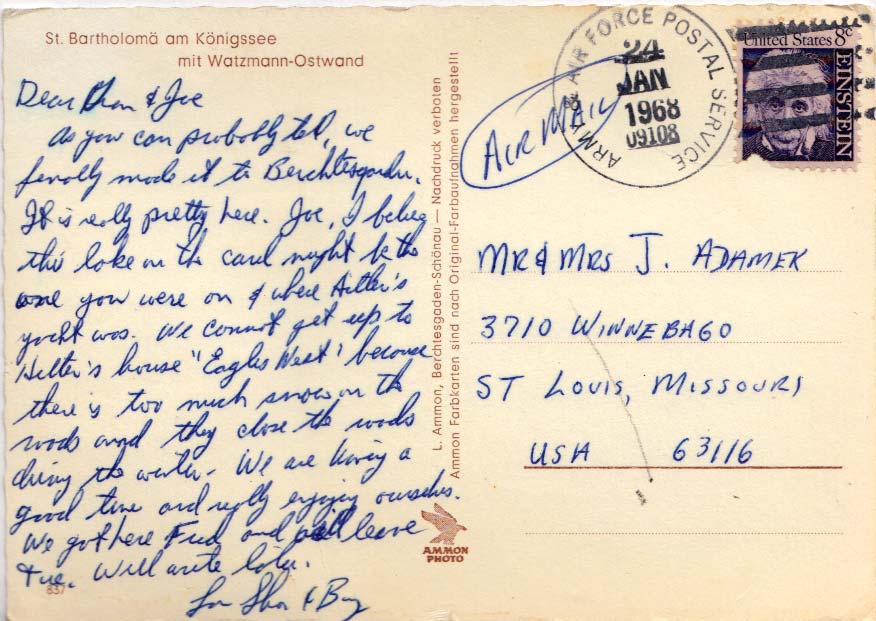 St. Bartholomä am Königssee
mit Watzmann-Ostwand
Dear & Joe
As you can probably tell, we
finally made it to Berchtesgaden.
It is really pretty here. Joe, I believe
this lake on the card might be the
one you were on & where Hitler's
yacht was. We cannot get up to
Hitler's house "Eagles Nest" because
there is too much snow on the
roads and they close the roads
during the winter. We are having a
good time and really enjoying ourselves.
We got here Fri and will leave
Tue. Will write later.
837
L. Ammon, Berchtesgaden-Schönau — Nachdruck verboten
Ammon Farbkarten sind nach Original-Farbaufnahmen hergestellt
AMMON
PHOTO
AIR MAIL
ARMY & AIR FORCE POSTAL SERVICE
24
JAN
1968
09108
United States 8c
EINSTEIN
MR & MRS J. ADAMEK
3710 WINNEBAGO
ST LOUIS, MISSOURI
USA 63116